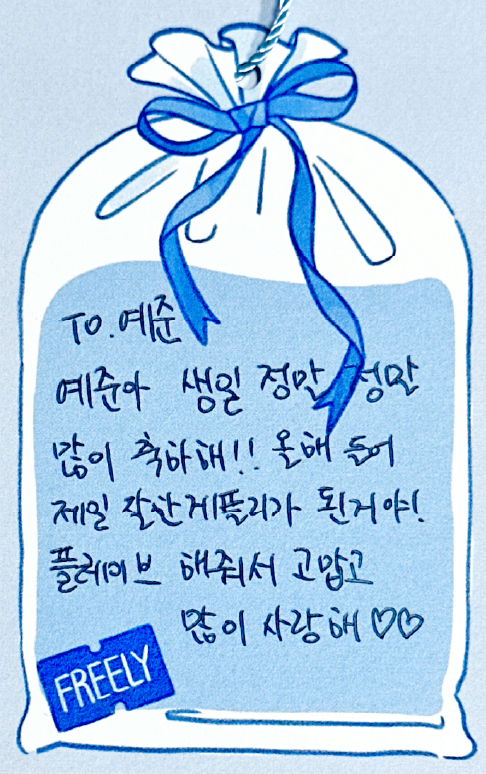 TO. 예준
예준아 생일 정말 정말
많이 축하해!! 올해 들어
제일 잘한게 플리가 된거야!
플레이브 해줘서 고맙고
많이 사랑해 ♡♡
FREELY